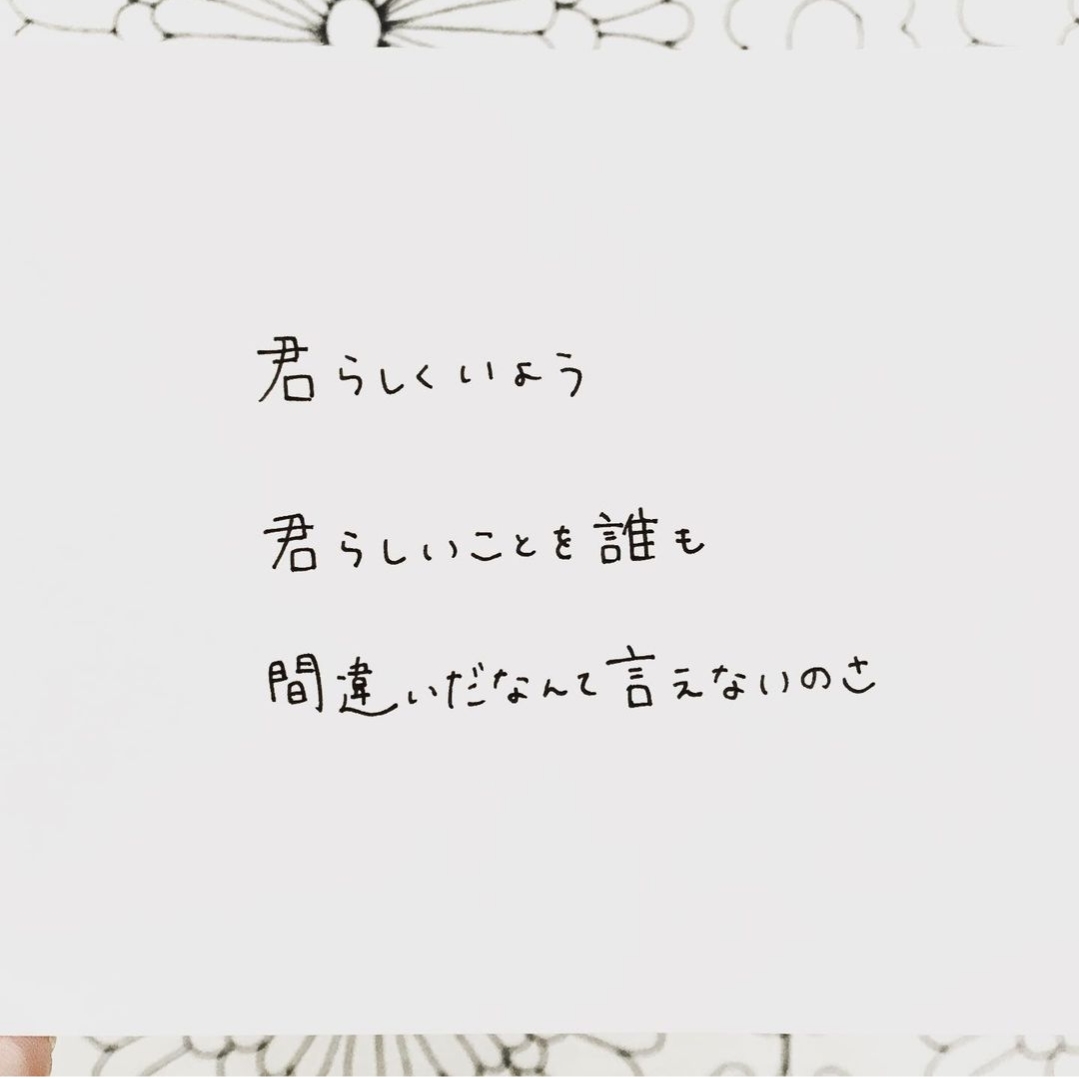 君らしくいよう
君らしいことを誰も
間違いだなんて言えないのさ